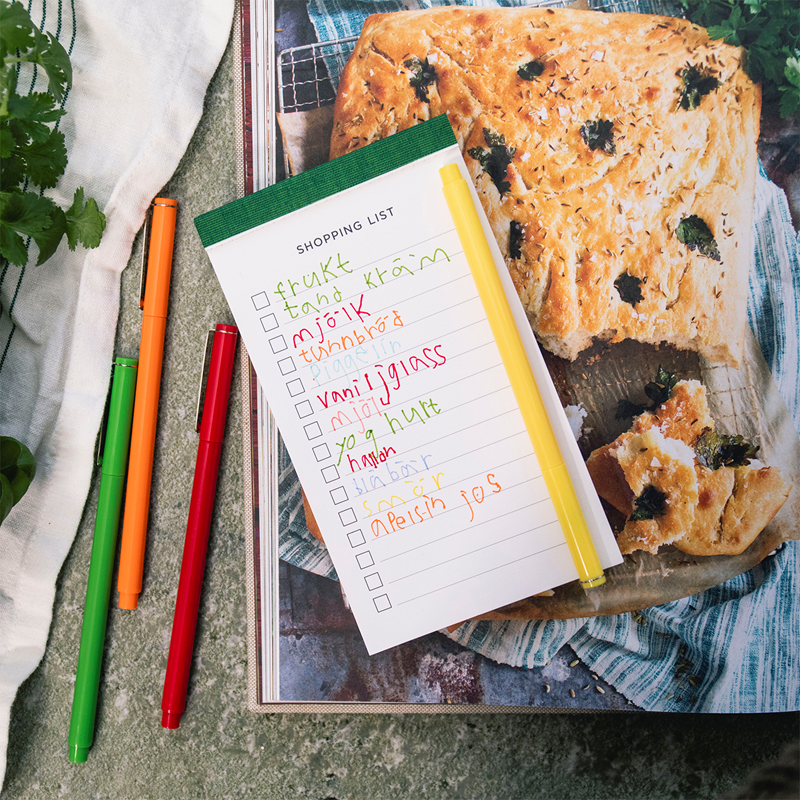 SHOPPING LIST
frukt
tand kräm
mjölk
tunnbröd
Piggelin
vaniljglass
mjöl
yog hurt
hallon
blåbär
smör
apelsin jos